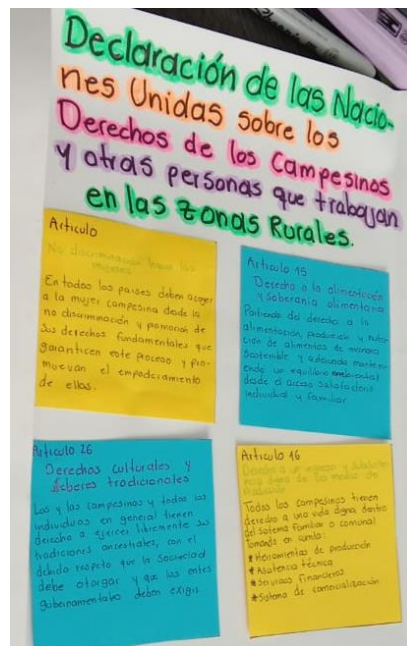 Declaración de las Nacio-
nes Unidas sobre los
Derechos de los Campesinos
y otras personas que trabajan
en las zonas Rurales.
Articulo
No discriminación hacia las
mujeres
En todos los paises deben acoger
a la mujer campesina desde la
no discriminación y promoción de
sus derechos fundamentales que
garanticen este proceso y pro-
muevan el empoderamiento
de ellas.
Articulo 15
Derecho a la alimentación
y soberania alimentaria
Partiendo del derecho a la
alimentación, producción y nutri-
ción de alimentos de manera
sostenible y adecuada manteni-
endo un equilibrio ambiental
desde el acceso satisfactorio
individual y familiar
Articulo 26
Derechos culturales y
saberes tradicionales
Los y las campesinos y todos los
individuos en general tienen
derecho a ejercer libremente sus
tradiciones ancestrales, con el
debido respeto que la sociedad
debe otorgar y que los entes
gubernamentales deben exigir.
Articulo 16
Derecho a un ingreso y
digna de los medios de
producción
Todos los campesinos tienen
derecho a una vida digna dentro
del sistema familiar o comunal
tomando en cuenta:
* Herramientas de producción
* Asistencia técnica
* Servicios financieros
* Sistema de comercialización